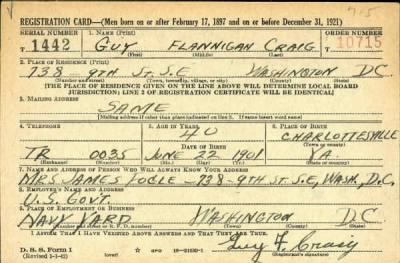 REGISTRATION CARD—(Men born on or after February 17, 1897 and on or before December 31, 1921)
SERIAL NUMBER 1. NAME (Print) ORDER NUMBER
T 1442 GUY FLANNIGAN CRAIG 10715
(First) (Middle) (Last)
2. PLACE OF RESIDENCE (Print)
738 9TH ST. S.E WASHINGTON D.C.
(Number and street) (Town, township, village, or city) (County) (State)
[THE PLACE OF RESIDENCE GIVEN ON THE LINE ABOVE WILL DETERMINE LOCAL BOARD
JURISDICTION; LINE 2 OF REGISTRATION CERTIFICATE WILL BE IDENTICAL]
3. MAILING ADDRESS
SAME
[Mailing address if other than place indicated on line 2. If same insert word same]
4. TELEPHONE 5. AGE IN YEARS 6. PLACE OF BIRTH
40 CHARLOTTESVILLE
DATE OF BIRTH (Town or county)
TR 0035 JUNE 22 1901 VA.
(Exchange) (Number) (Mo.) (Day) (Yr.) (State or country)
7. NAME AND ADDRESS OF PERSON WHO WILL ALWAYS KNOW YOUR ADDRESS
MRS JAMES FOGLE - 738 - 9TH ST. S.E, WASH., D.C.
8. EMPLOYER'S NAME AND ADDRESS
U.S. GOVT.
9. PLACE OF EMPLOYMENT OR BUSINESS
NAVY YARD WASHINGTON D C
(Number and street or R. F. D. number) (Town) (County) (State)
I AFFIRM THAT I HAVE VERIFIED ABOVE ANSWERS AND THAT THEY ARE TRUE.
D. S. S. Form 1
(Revised 1-1-42) (over) Guy F. Craig